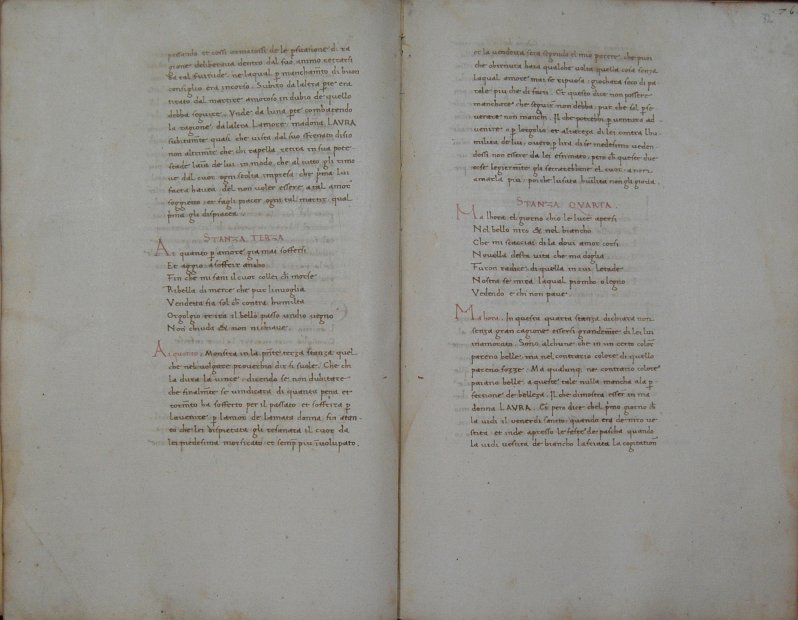 pensando et cossi armatossi de le psuasione di ra
gione deliberava dentro dal suo animo retrarsi
da tal servitude ne laqual p manchamto di buon
consiglio era incorso. Subito dalaltra pte era
tirato dal martire amoroso in dubio de quello
debba seguire. Unde da luna pte combatendo
la ragione dalaltra Lamore. madona LAVRA
subitamte quasi che vista dal suo sfrenato disio
non altrimte che chi rapella retira in sua pote
stade laīa de lui in modo, che al tutto gli rimo
ve dal cuor ogni stolta impresa che pma lui
facta haueva del non voler essere a tal amor
soggietto et fagli piacer ogni tal martir qual
pma gli dispiacea.
STANZA TERZA
Ai quanto p amore gia mai soffersi
Et aggio a soffrir ancho
Fin che mi sani il cuor collei chil morse
Ribella di merce che pur linvoglia
Vendetta fia sol ch contra humilta
Orgolgio et ira il bello passo undio vegno
Non chiuda & non nichiave.
Ai quanto. Monstra in la pnte terza stanza quel
che nel volgare proverbio dir si suole. Che chi
la dura la vince. dicendo se non dubitare
che finalmte se vindicara di quanta pena et
tormto ha sofferto per il passato et sofferira p
lavenire p lamor de lamata donna, fin atan
to che lei dispietata gli resanara il cuor da
lei medesima morsicato et semp piu involuppato.
76
et la vendetta sera segondo el mio parere, che puoi
che obtenuta hara qualche volta quella cosa senza
laqual amore mai se riposa, giochera seco di pa
role piu che di facti. Et questo dice non possere
manchare che seguir non debba, pur che sol pse
verare non manchi. Il che potrebbe p ventura ad
venire o p lorgolio et alterezza di lei contra lhu
milita de lui, overo p lira di se medesimo veden
dossi non essere da lei estimato, pero ch queste due
cose legiermte gli serrarebbeno el cuor, a non
amarla piu, poi che lusata humilita non gli giova.
STANZA QVARTA.
Ma lhora et giorno chio le luce apersi
Nel bello niro & nel biancho
Che mi scacciar di la dove amor corsi
Novella desta vita che ma doglia
Furon radice, di quella in cui letade
Nostra se mira laqual piombo o legno
Vedendo e chi non pave.
Ma hora. In questa quarta stanza dichiara non
senza gran cagione essersi grandemte di lei lui
inamorato. Sono alchune che in un certo colore
pareno belle, ma nel contrario colore di quello
pareno sozze. Ma qualunq; ne contrario colore
paiano belle, a queste tale nulla mancha ala p
fectione de belleza. Il che dimostra esser in ma
donna LAVRA. Et pero dice chel pmo giorno ch
la vidi il venerdi sancto, quando era de niro ve
stita et inde apresso le feste de pascha, quando
la vidi vestita de biancho lasciata la cogitation